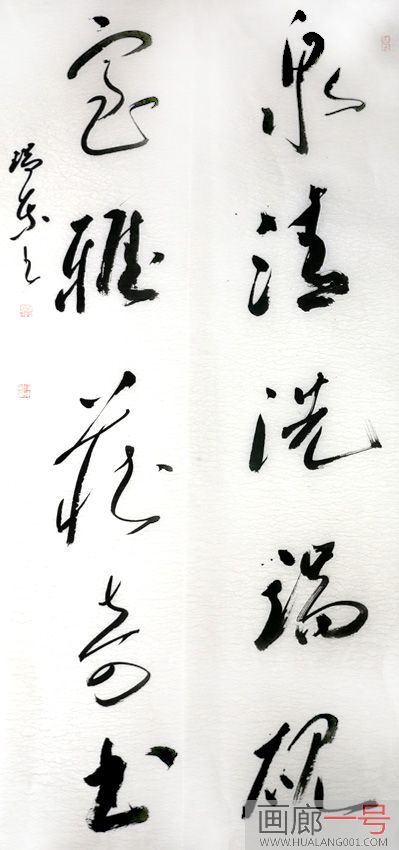 泉清洗端砚
室雅藏奇书
画廊一号
WWW.HUALANG001.COM